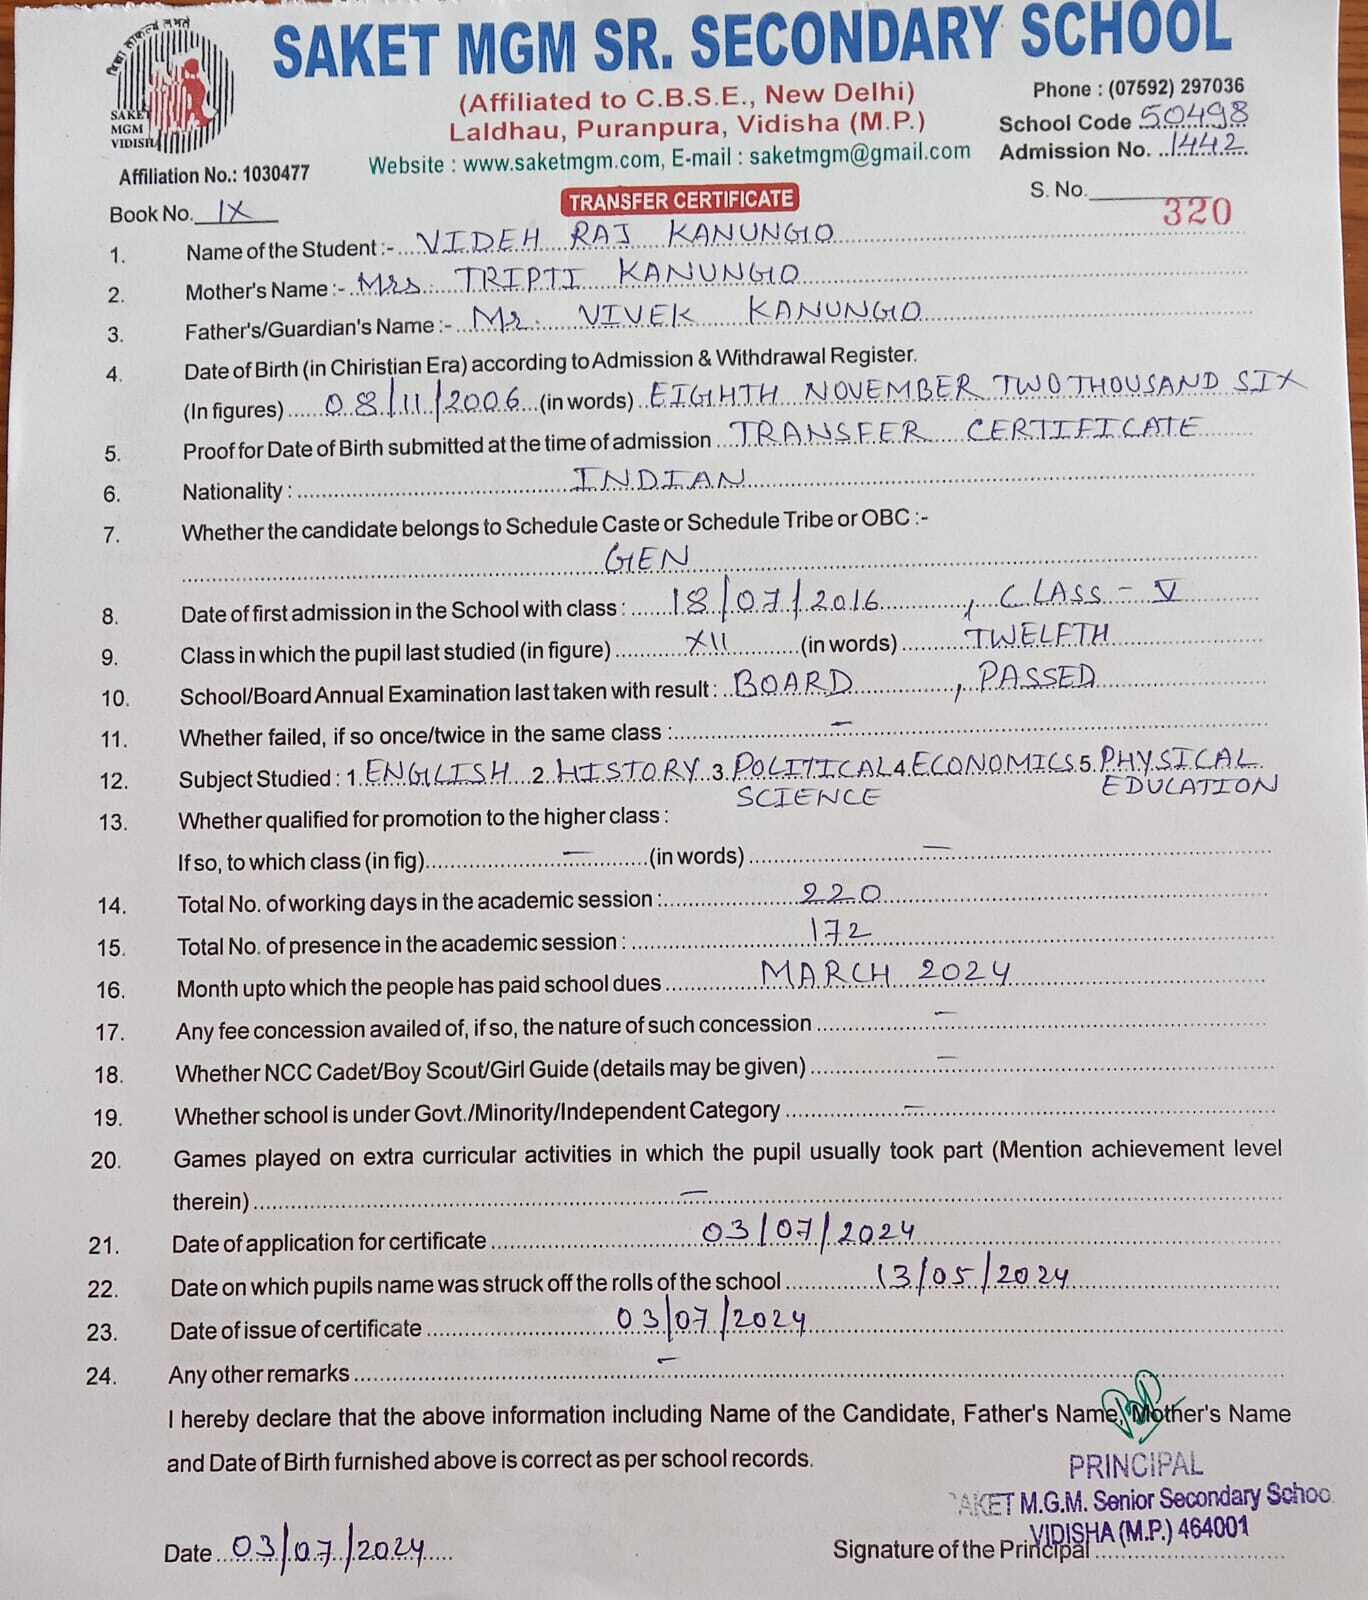 SAKET MGM SR. SECONDARY SCHOOL
(Affiliated to C.B.S.E., New Delhi)
Laldhau, Puranpura, Vidisha (M.P.)
Website : www.saketmgm.com, E-mail : saketmgm@gmail.com
Phone : (07592) 297036
School Code 50498
Admission No. 1442
SAKET
MGM
VIDISHA
Affiliation No.: 1030477
Book No. IX
TRANSFER CERTIFICATE
S. No. 320
1. Name of the Student :- VIDEH RAJ KANUNGO
2. Mother's Name :- Mrs. TRIPTI KANUNGO
3. Father's/Guardian's Name :- Mr. VIVEK KANUNGO
4. Date of Birth (in Chiristian Era) according to Admission & Withdrawal Register.
(In figures) 08/11/2006 (in words) EIGHTH NOVEMBER TWO THOUSAND SIX
5. Proof for Date of Birth submitted at the time of admission TRANSFER CERTIFICATE
6. Nationality : INDIAN
7. Whether the candidate belongs to Schedule Caste or Schedule Tribe or OBC :-
GEN
8. Date of first admission in the School with class : 18/07/2016, CLASS - V
9. Class in which the pupil last studied (in figure) XII (in words) TWELFTH
10. School/Board Annual Examination last taken with result : BOARD, PASSED
11. Whether failed, if so once/twice in the same class : —
12. Subject Studied : 1. ENGLISH 2. HISTORY 3. POLITICAL 4. ECONOMICS 5. PHYSICAL
SCIENCE EDUCATION
13. Whether qualified for promotion to the higher class :
If so, to which class (in fig) — (in words) —
14. Total No. of working days in the academic session : 220
15. Total No. of presence in the academic session : 172
16. Month upto which the people has paid school dues MARCH 2024
17. Any fee concession availed of, if so, the nature of such concession —
18. Whether NCC Cadet/Boy Scout/Girl Guide (details may be given) —
19. Whether school is under Govt./Minority/Independent Category —
20. Games played on extra curricular activities in which the pupil usually took part (Mention achievement level
therein) —
21. Date of application for certificate 03/07/2024
22. Date on which pupils name was struck off the rolls of the school 13/05/2024
23. Date of issue of certificate 03/07/2024
24. Any other remarks —
I hereby declare that the above information including Name of the Candidate, Father's Name, Mother's Name
and Date of Birth furnished above is correct as per school records.
PRINCIPAL
SAKET M.G.M. Senior Secondary School
VIDISHA (M.P.) 464001
Date 03/07/2024
Signature of the Principal